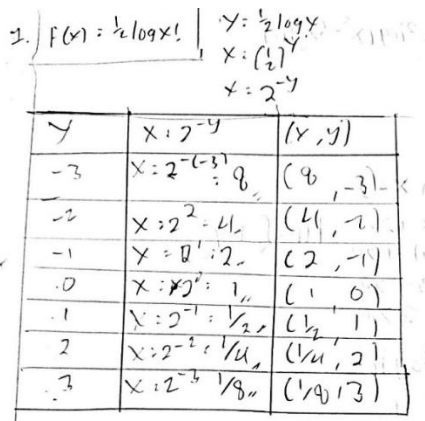 1. F(x) : ½ log x! y = ½ log x.
x = (½)^y
x = 2^-y
y x : 2^-y (x, y)
-3 x = 2^-(-3) = 8,, (8, -3)
-2 x : 2^2 = 4,, (4, -2)
-1 x = 2^1 : 2,, (2, -1)
.0 x : 2^0 : 1,, (1 0)
.1 x : 2^-1 : 1/2,, (1/2, 1)
2 x : 2^-2 : 1/4,, (1/4, 2)
.3 x : 2^-3 1/8,, (1/8, 3)